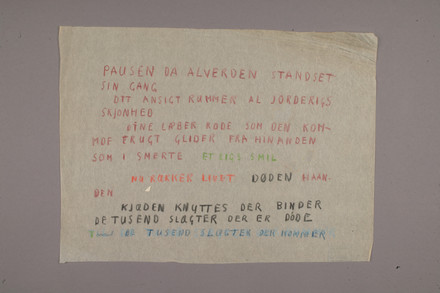 PAUSEN DA ALVERDEN STANDSET
SIN GANG
DIT ANSIGT RUMMER AL JORDERIGS
SKJØNHED
DINE LÆBER RØDE SOM DEN KOM-
MDE FRUGT GLIDER FRA HINANDEN
SOM I SMERTE ET LIGS SMIL
NU RÆKKER LIVET DØDEN HAAN-
DEN
KJÆDEN KNYTTES DER BINDER
DE TUSEND SLÆGTER DER ER DØDE
TUSEND SLÆGTER DER KOMMER